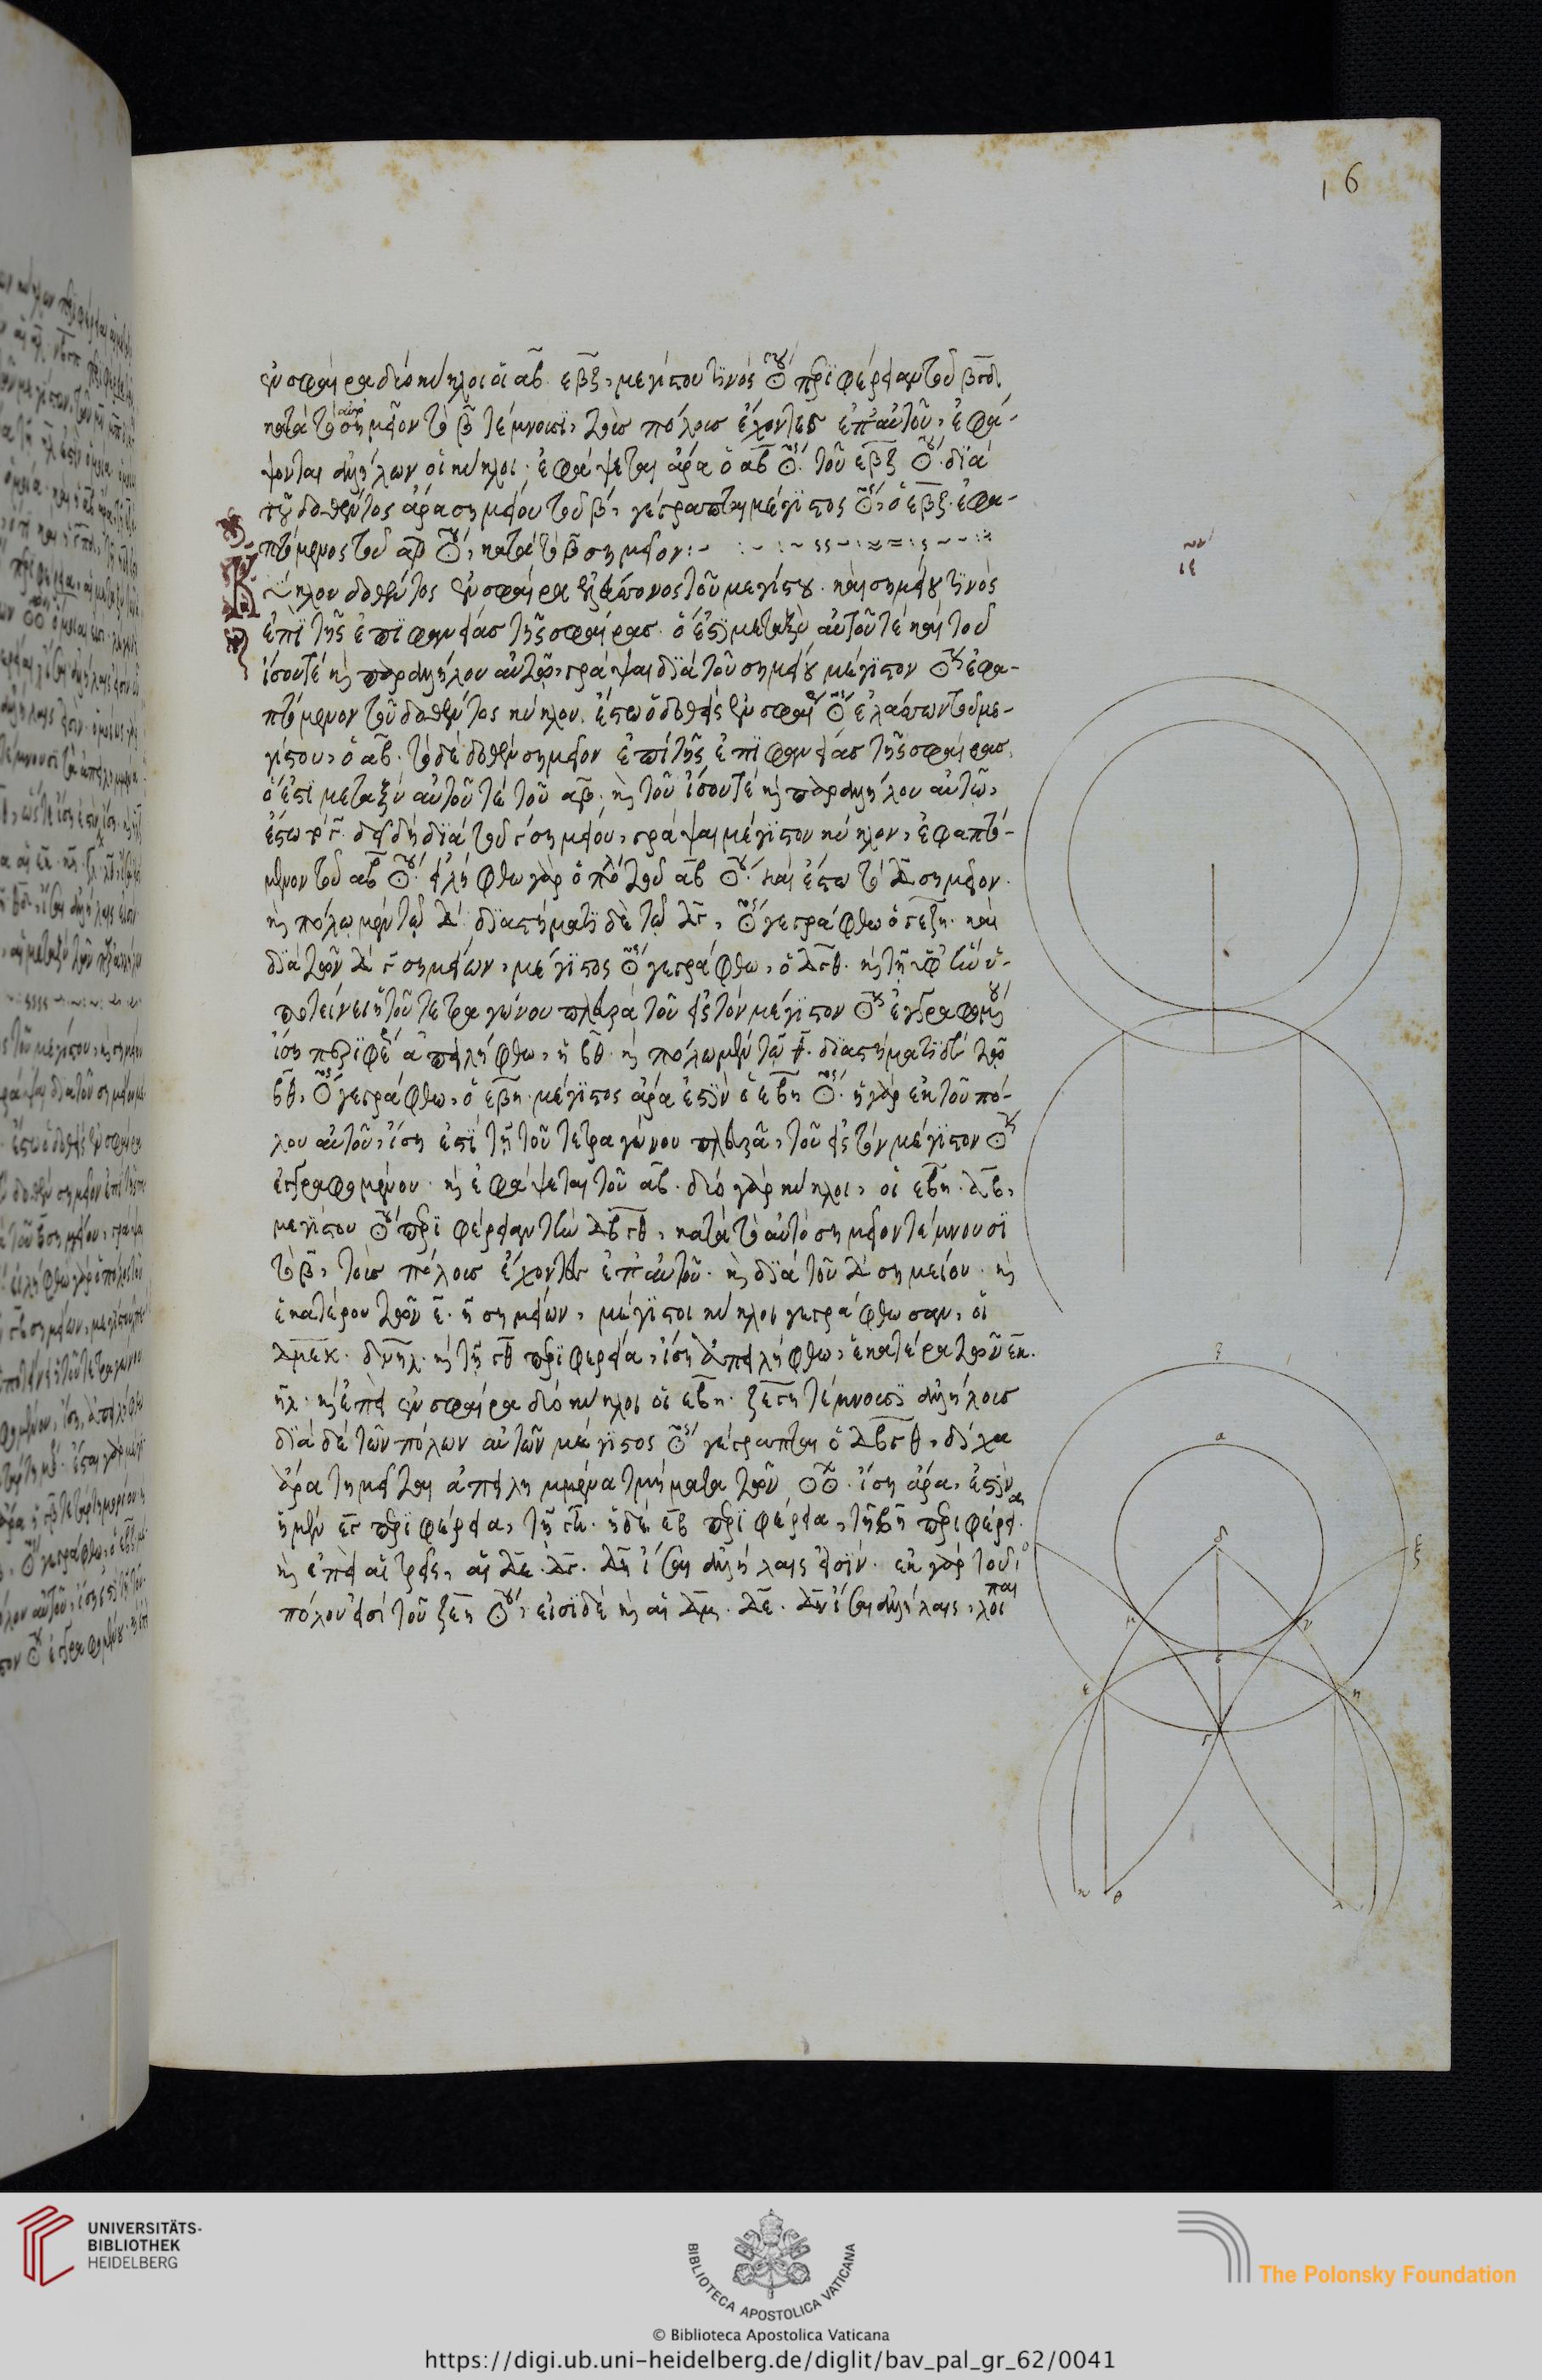 16
ἐν σφαίρα δύο κύκλοι οἱ αβ. εβξ, μεγίστου τινὸς ☉ου περιφέρειαν τοῦ βγδ
κατὰ τὸ αὐτὸ σημεῖον τὸ β τέμνουσι, τοὺς πόλους ἔχοντες ἐπ' αὐτοῦ, ἐφά-
ψονται ἀλλήλων οἱ κύκλοι. ἐφάψεται ἄρα ὁ αβ ☉ος τοῦ εβξ ☉ου. διὰ
τοῦ δοθέντος ἄρα σημείου τοῦ β, γέγραπται μέγιστος ☉ος, ὁ εβξ. ἐφα-
πτόμενος τοῦ αβ ☉ου, κατὰ τὸ β σημεῖον :-
ιε
Κύκλου δοθέντος ἐν σφαίρα ἐλάττονος τοῦ μεγίστου. καὶ σημείου τινὸς
ἐπὶ τῆς ἐπιφανείας τῆς σφαίρας. ὅ ἐστι μεταξὺ αὐτοῦ τε καὶ τοῦ
ἴσου τε καὶ παραλλήλου αὐτῷ, γράψαι διὰ τοῦ σημείου μέγιστον ☉ον ἐφα-
πτόμενον τοῦ δοθέντος κύκλου. ἔστω ὁ δοθεὶς ἐν σφαίρα ☉ος ἐλάττων τοῦ με-
γίστου, ὁ αβ. τὸ δὲ δοθὲν σημεῖον ἐπὶ τῆς ἐπιφανείας τῆς σφαίρας.
ὅ ἐστι μεταξὺ αὐτοῦ τε τοῦ αβ. καὶ τοῦ ἴσου τε καὶ παραλλήλου αὐτῷ,
ἔστω τὸ γ. δεῖ δὴ διὰ τοῦ γ σημείου, γράψαι μέγιστον κύκλον, ἐφαπτό-
μενον τοῦ αβ ☉ου. εἰλήφθω γὰρ ὁ πόλος τοῦ αβ ☉ου. καὶ ἔστω τὸ δ σημεῖον.
καὶ πόλῳ μὲν τῷ δ. διαστήματι δὲ τῷ δγ, ☉ος γεγράφθω ὁ γεξη. καὶ
διὰ τῶν δ γ σημείων, μέγιστος ☉ος γεγράφθω, ὁ δγθ. καὶ τῇ περιφερείᾳ ἣν ὑ-
ποτείνει ἡ τοῦ τετραγώνου πλευρὰ τοῦ εἰς τὸν μέγιστον ☉ον ἐγγραφομένου
ἴση περιφέρεια ἀπειλήφθω, ἡ βθ. καὶ πόλῳ μὲν τῷ θ. διαστήματι δὲ τῷ
βθ, ☉ος γεγράφθω, ὁ εβη. μέγιστος ἄρα ἐστὶν ὁ εβη ☉ος. ἡ γὰρ ἐκ τοῦ πό-
λου αὐτοῦ, ἴση ἐστὶ τῇ τοῦ τετραγώνου πλευρᾷ, τοῦ εἰς τὸν μέγιστον ☉ον
ἐγγραφομένου. καὶ ἐφάψεται τοῦ αβ. δύο γὰρ κύκλοι, οἱ εβη. αβ,
μεγίστου ☉ου περιφέρειαν τὴν δβγθ, κατὰ τὸ αὐτὸ σημεῖον τέμνουσι
τὸ β, τοὺς πόλους ἔχοντες ἐπ' αὐτοῦ. καὶ διὰ τοῦ δ σημείου. καὶ
ἑκατέρου τῶν ε. η σημείων, μέγιστοι κύκλοι γεγράφθωσαν, οἱ
δμεκ. δνηλ. καὶ τῇ γθ περιφερείᾳ, ἴση ἀπειλήφθω, ἑκατέρα τῶν εκ.
ηλ. καὶ ἐπεὶ ἐν σφαίρα δύο κύκλοι οἱ εβη. ξεγη τέμνουσιν ἀλλήλους
διὰ δὲ τῶν πόλων αὐτῶν μέγιστος ☉ος γέγραπται ὁ δβγθ, δίχα
ἄρα τέμνεται ἀπειλημμένα τμήματα τῶν ☉☉. ἴση ἄρα, ἐστὶν
ἡ μὲν εγ περιφέρεια, τῇ γη. ἡ δὲ εβ περιφέρεια, τῇ βη περιφερείᾳ.
καὶ ἐπεὶ αἱ τρεῖς, αἱ δε. δγ. δη ἴσαι ἀλλήλαις εἰσίν. ἐκ γὰρ τοῦ
πόλου εἰσὶ τοῦ ξεη ☉ου, εἰσὶ δὲ καὶ αἱ δμ. δβ. δν ἴσαι ἀλλήλαις, λοιπαὶ
ζ
α
δ
ο
ξ
μ
ν
β
ε
η
γ
κ
θ
λ
UNIVERSITÄTS-
BIBLIOTHEK
HEIDELBERG
BIBLIOTECA APOSTOLICA VATICANA
The Polonsky Foundation
© Biblioteca Apostolica Vaticana
https://digi.ub.uni-heidelberg.de/diglit/bav_pal_gr_62/0041